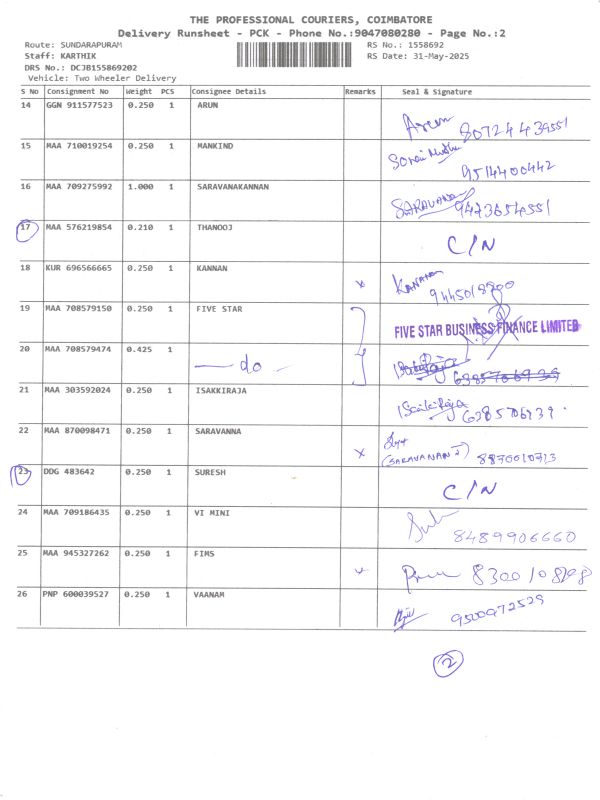 THE PROFESSIONAL COURIERS, COIMBATORE
Delivery Runsheet - PCK - Phone No.:9047080280 - Page No.:2
Route: SUNDARAPURAM RS No.: 1558692
Staff: KARTHIK RS Date: 31-May-2025
DRS No.: DCJB155869202
Vehicle: Two Wheeler Delivery
S No Consignment No Weight PCS Consignee Details Remarks Seal & Signature
14 GGN 911577523 0.250 1 ARUN Arun 80724439551
15 MAA 710019254 0.250 1 MANKIND 9514400442
16 MAA 709275992 1.000 1 SARAVANAKANNAN SARAVANA 9473654551
17 MAA 576219854 0.210 1 THANOOJ C/N
18 KUR 696566665 0.250 1 KANNAN x
19 MAA 708579150 0.250 1 FIVE STAR FIVE STAR BUSINESS FINANCE LIMITED
20 MAA 708579474 0.425 1 — do - 6385706939
21 MAA 303592024 0.250 1 ISAKKIRAJA 6385706939.
22 MAA 870098471 0.250 1 SARAVANNA x (SARAVANAN J) 8870010713
23 DDG 483642 0.250 1 SURESH C/N
24 MAA 709186435 0.250 1 VI MINI 8489906660
25 MAA 945327262 0.250 1 FIMS
26 PNP 600039527 0.250 1 VAANAM 9500972529
2